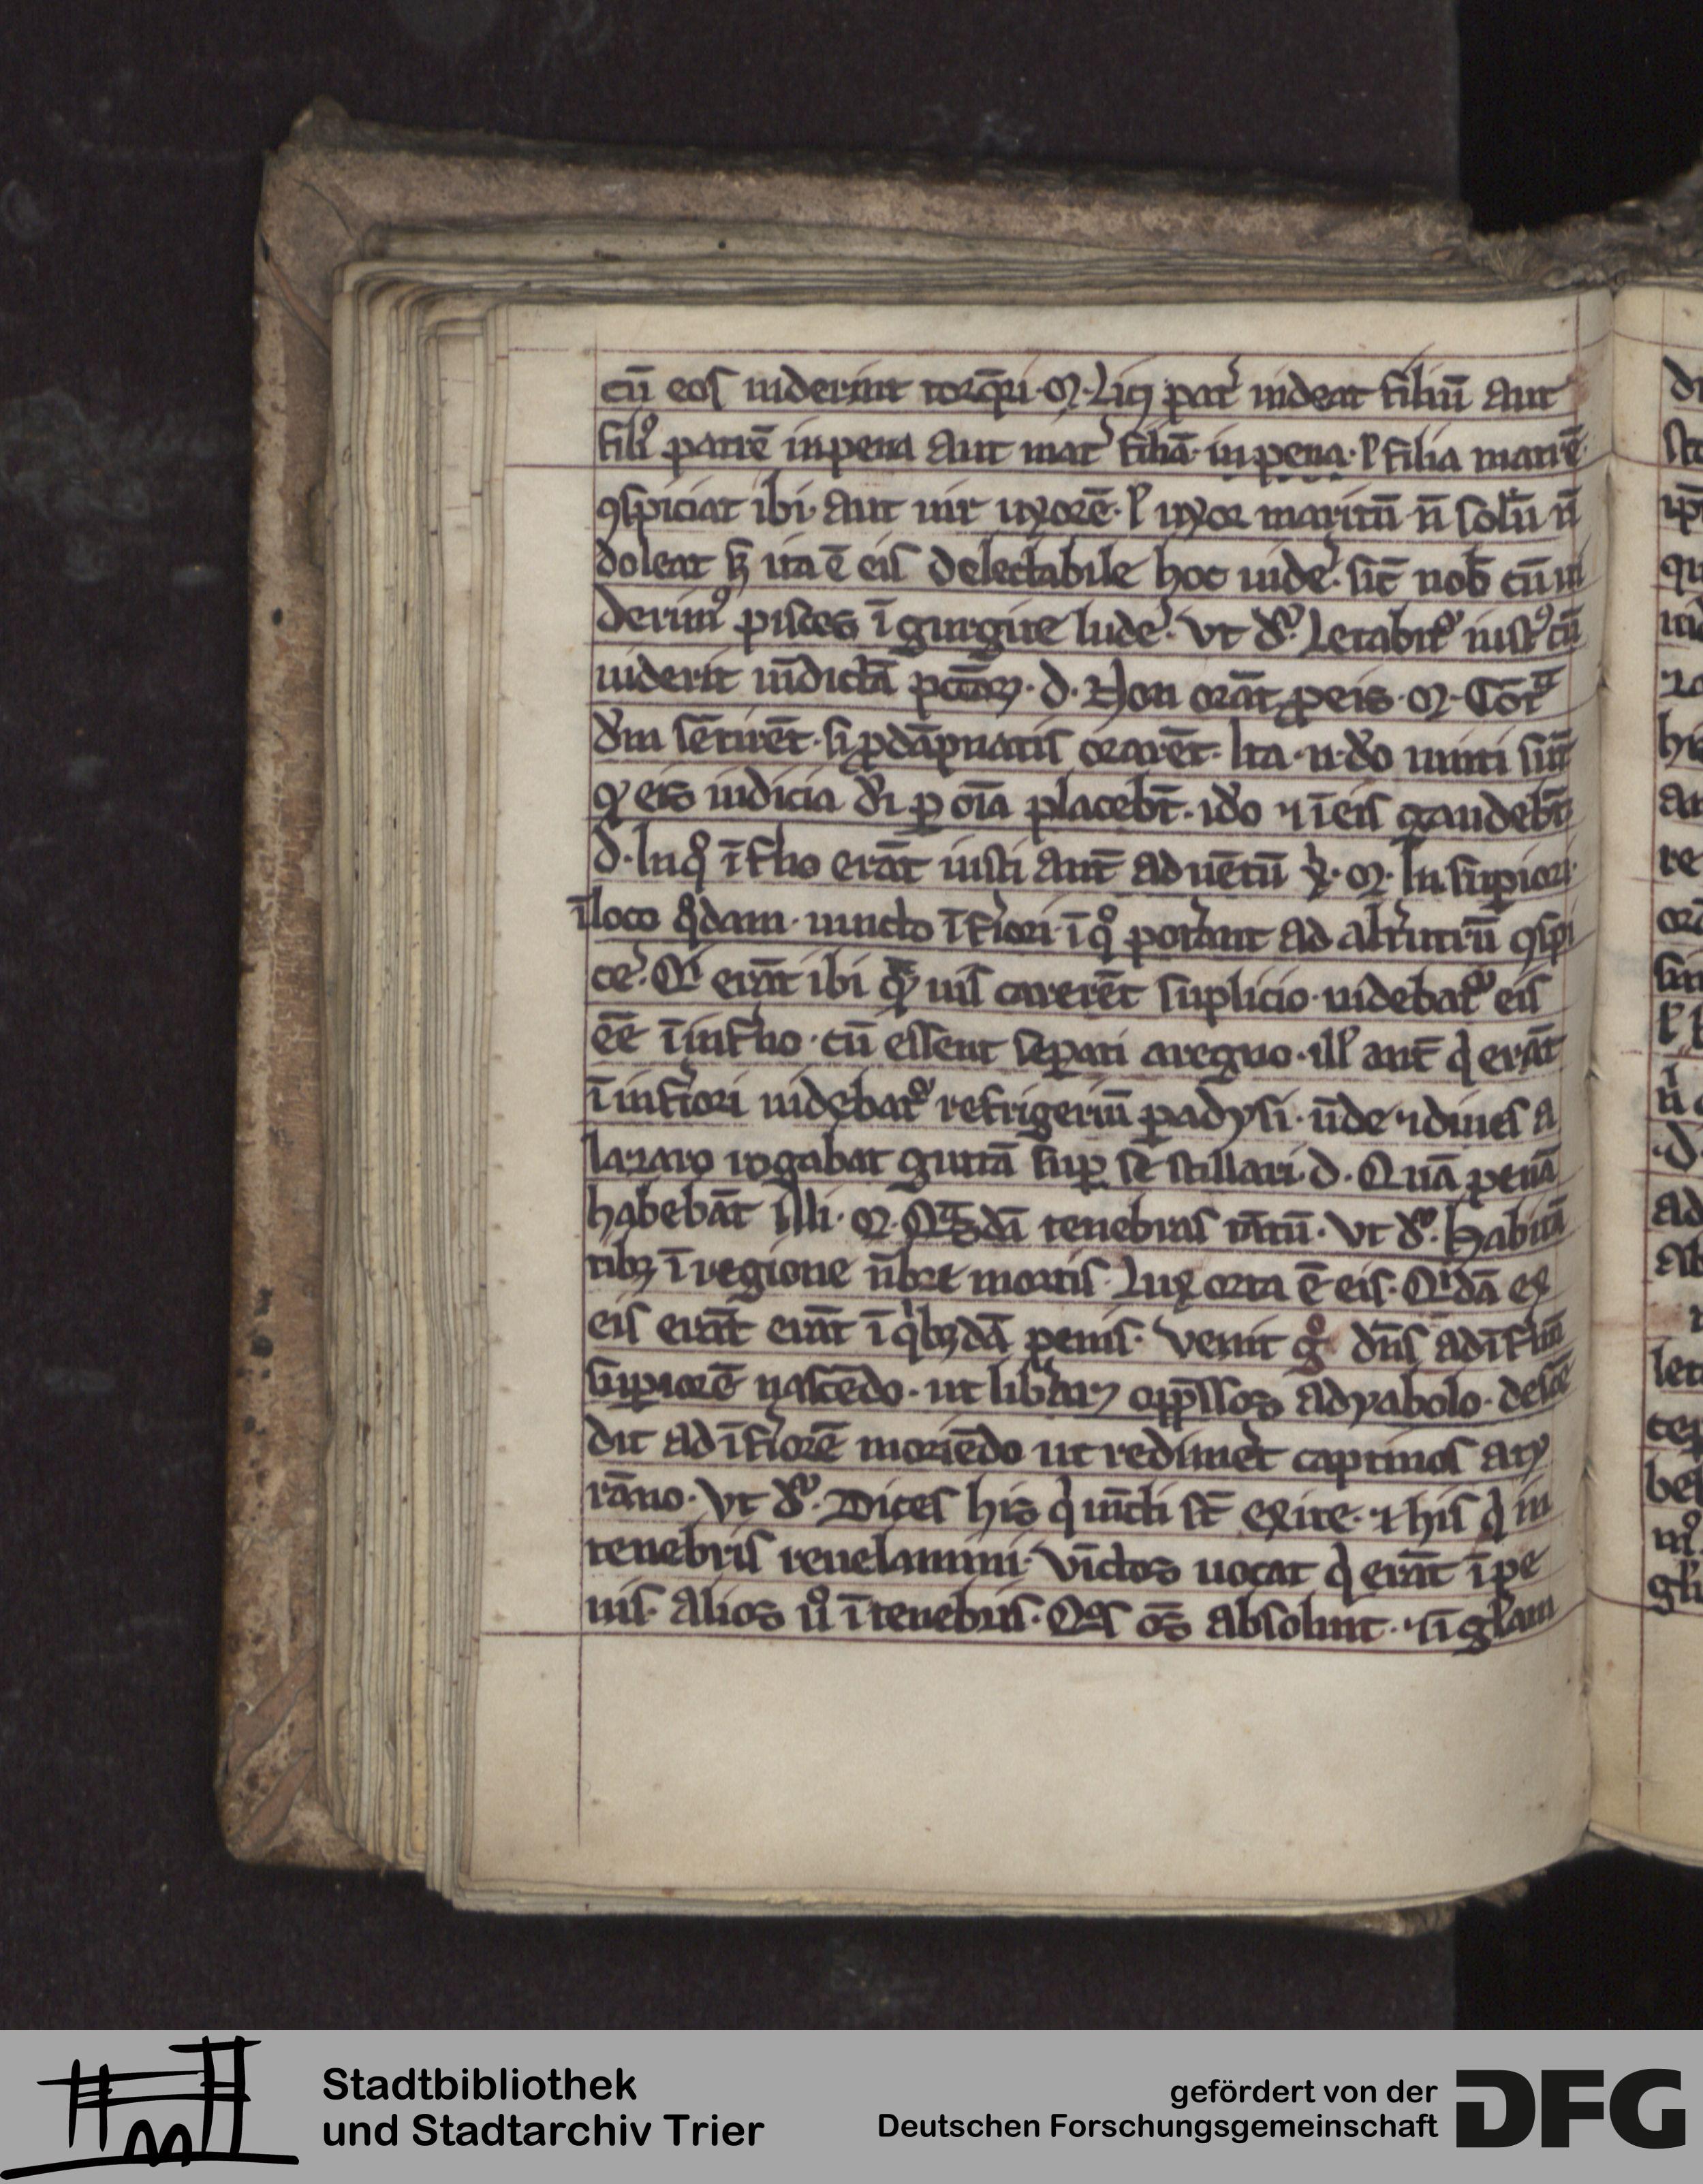 cū eos uiderint torq̄ri · M · Licꝫ pat᷑ uideat filiū aut
fili᷒ patrē in pena aut mat᷑ filiā · in pena · ł filia matrē
ꝯspiciat ibi · aut uir uxorē · ł uxor maritū n̄ solū n̄
doleat sꝫ ita ē eis delectabile hoc uide᷑ · sic̄ nob̄ cū ui
derim᷒ pisces ī gurgite lude᷑ · Vt dr᷑ · Letabit᷑ iust᷒ cū
uiderit uīdictā pctōꝝ · d · Non orāt ꝓ eis · M · Cōtᵃ
dm̄ sētirēt · si ꝓ dāpnatis orarēt · Ita · n · do uniti sūt
qͥ eis iudicia di ꝑ oīa placebt̄ · ido ⁊ ī eis gaudebt̄
d · In qͦ īf̄no erāt iusti ant̄ aduētū x᷑ · M · In suꝑiori ·
ī loco qͦdam · iuncto īf̄iori · ī qͦ pot᷑ant ad alt᷑utrū ꝯspi
ce᷑ · Qͥ erāt ibi qͣuis carerēt suplicio · uidebat᷑ eis
eē̄ ī inf̄no · cū essent seꝑati a regno · ill᷑ aut̄ qͥ erāt
ī inf̄iori uidebat᷑ refrigeriū ꝑadysi · ūde ⁊ diues a
lazaro rogabat guttā suꝑ sē stillari · d · Quā penā
habebāt illi · M · Qͣsdā tenebras tātū · Vt dr᷑ · Habitā
tibꝫ ī regione ūbre mortis · Lux orta ē eis · Qͥdā ex
eis erāt erāt ī qͥbꝫdā penis · Venit gͦ dn̄s ad īf̄nū
suꝑiorē nascēdo · ut lib᷑aret opp̄ssos a dyabolo · descē
dit ad īf̄iorē moriēdo ut redim᷑et captiuos a ty
rāno · Vt dr᷑ · Dices his qͥ uīcti st̄ exite · ⁊ his qͥ in
tenebris reuelamini · Vīctos uocat qͥ erāt ī pe
nis · Alios uͦ ī tenebris · Qͦs oēs absoluit · ⁊ ī gl᷑am
Stadtbibliothek
und Stadtarchiv Trier
gefördert von der
Deutschen Forschungsgemeinschaft
DFG